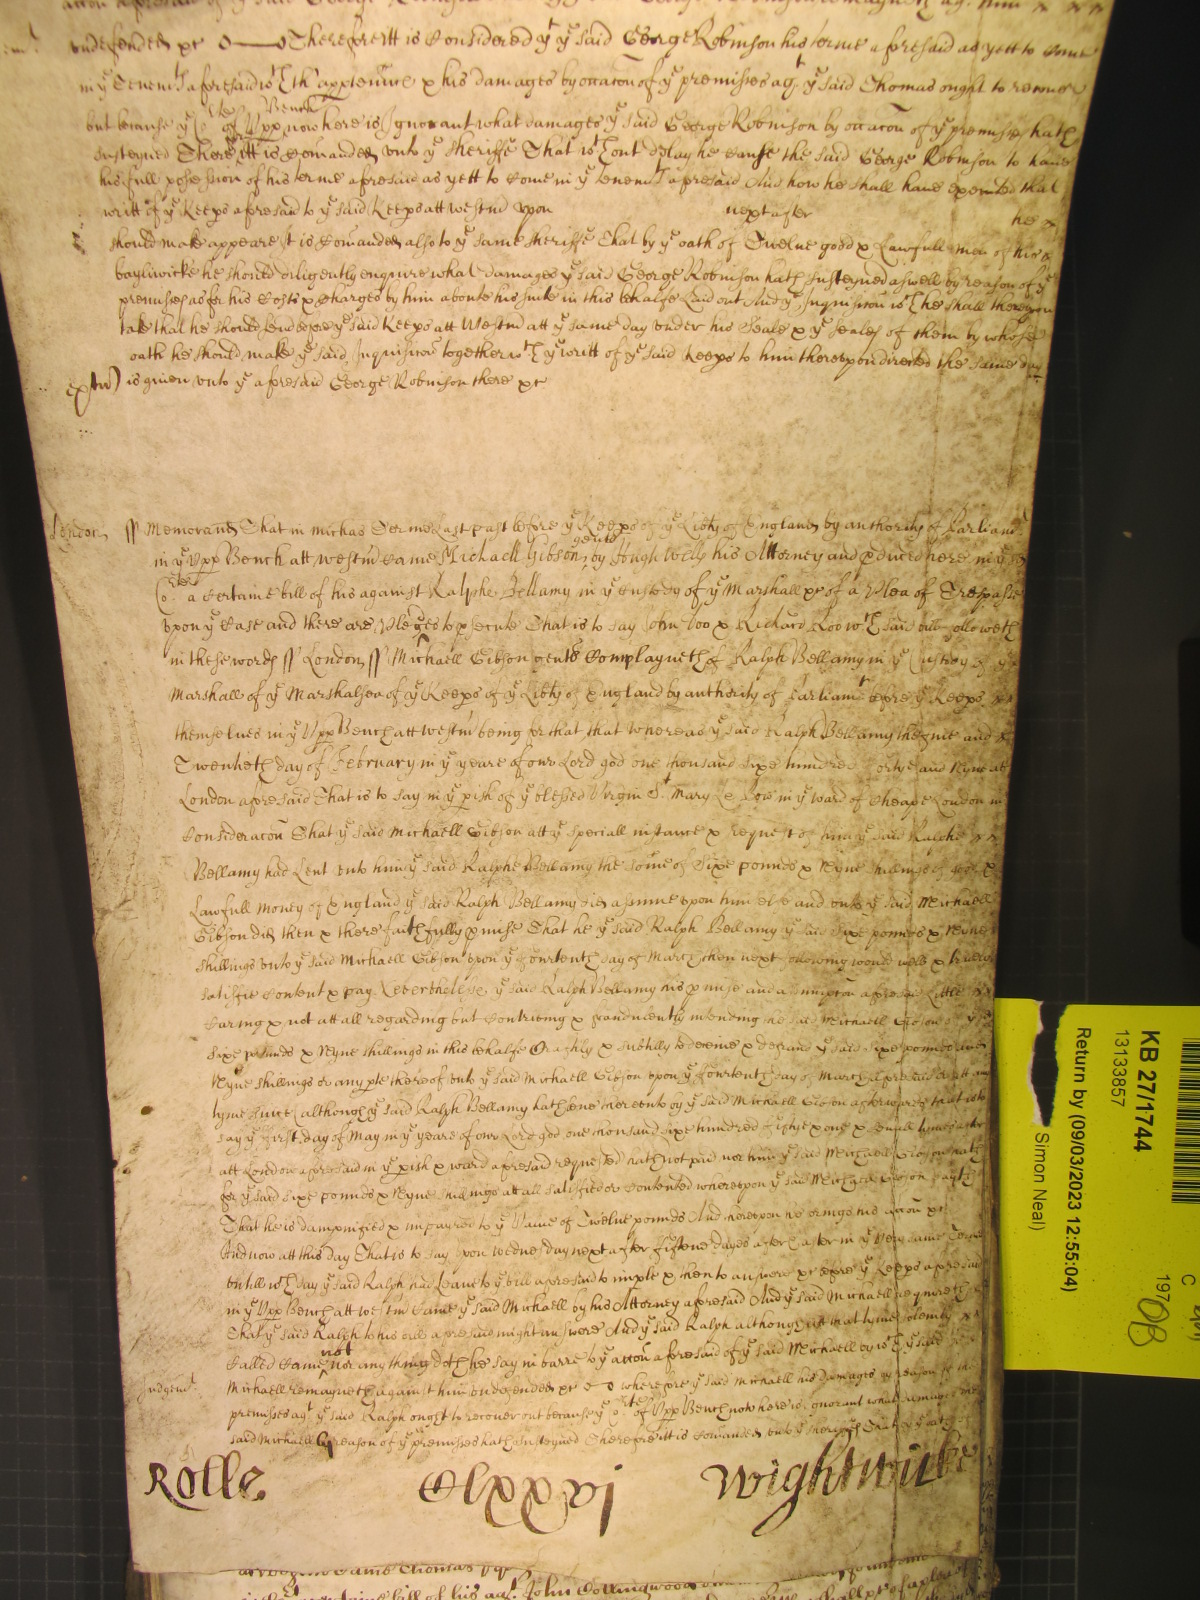 undefended &c Therefore itt is Considered yt ye said George Robinson his terme aforesaid as yett to Come
in ye Tenemts aforesaid wth th'apptennce & his damages by occacon of ye premisses agt ye said Thomas ought to recover
but because ye Cort of ye Upp Bench now here is Ignorant what damages ye said George Robinson by occacon of ye premisses hath
susteyned Therefore itt is Comanded unto ye Sheriffe That wthout delay he Cause the said George Robinson to have
his full possession of his terme aforesaid as yett to Come in ye tenemts aforesaid And how he shall have executed that
writt of ye Keeps aforesaid to ye said Keeps att Westmr upon next after he
should make appeare It is Comanded also to ye same Sheriffe That by ye oath of Twelve good & Lawfull men of his
bayliwicke he should diligently enquire what damages ye said George Robinson hath susteyned aswell by reason of ye
premisses as for his Costs & Charges by him aboute his suite in this behalfe Laid out And ye Inquisicon wch he shall thereupon
take that he should send before ye said Keeps att Westmr att ye same day under his Seale & ye Seales of them by whose
oath he should make ye said Inquisicon together wth ye writt of ye said Keeps to him thereupon directed the same day
is given unto ye aforesaid George Robinson there &c
London ss Memorand That in Michas Terme Last past before ye Keeps of ye Libty of England by authority of Parliamt
in ye Upp Bench att Westmr Came Michaell Gibson gentl by Hugh Wells his Attorney and pduced here in ye sd
Cort a Certaine bill of his against Ralphe Bellamy in ye Custody of ye Marshall &c of a Plea of Trespasse
upon ye Case and there are Pledges to psecute That is to say John Doo & Richard Roo wch said bill followeth
in these words ss London ss Michaell Gibson gentl Complayneth of Ralph Bellamy in ye Custody of ye
Marshall of ye Marshalsea of ye Keeps of ye Libty of England by authority of Parliamt before ye Keeps
themselves in ye Upp Bench att Westmr being for that that Whereas ye said Ralph Bellamy the five and
Twentieth day of February in ye yeare of our Lord god one thousand sixe hundred fortye and Nyne att
London aforesaid That is to say in ye pish of ye blessed Virgin St Mary Le Bow in ye ward of Cheape London in
Consideracon That ye said Michaell Gibson att ye speciall instance & request of him ye said Ralphe
Bellamy had Lent unto him ye said Ralphe Bellamy the some of Sixe pounds & Nyne shillings of good &
Lawfull money of England ye said Ralph Bellamy did assume upon himselfe and unto ye said Michaell
Gibson did then & there faithfully pmise That he ye said Ralph Bellamy ye said sixe pounds & Nyne
shillings unto ye said Michaell Gibson upon ye fourtenth day of March then next following would well & truely
satisfie Content & pay Neverthelesse ye said Ralph Bellamy his pmise and assumpcon aforesaid Little
Caring & not att all regarding but Contriving & fraudulently intending ye said Michaell Gibson of ye sd
sixe pounds & Nyne shillings in this behalfe Craftily & subtilly to deceive & defraud ye said sixe pounds and
Nyne shillings or any pte thereof unto ye said Michaell Gibson upon ye fourtenth day of March aforesaid or att any
tyme since (although ye said Ralph Bellamy hath bene thereunto by ye said Michaell Gibson afterwards that is to
say ye first day of May in ye yeare of our Lord god one thousand sixe hundred fiftye & one & often tymes after
att London aforesaid in ye pish & ward aforesaid requested hath not paid nor him ye said Michaell Gibson hath
for ye said sixe pounds & Nyne shillings att all satisfied or Contented whereupon ye said Michaell Gibson sayth
That he is dampnified & impayred to ye Value of Twelve pounds And thereupon he brings his accon &c
And now att this day That is to say upon Wednesday next after fiftene dayes after Easter in ye very same Terme
untill wch day ye said Ralph had Leave to ye bill aforesaid to imple & then to answere &c before ye Keeps aforesaid
in ye Upp Bench att Westmr Came ye said Michaell by his Attorney aforesaid And ye said Michaell requireth
That ye said Ralph to his bill aforesaid might answere And ye said Ralph although att that tyme solemnly
Called Came not nor any thing doth he say in barre to ye accon aforesaid of ye said Michaell by wch ye said
Judgemt Michaell remayneth against him undefended &c Wherefore ye said Michaell his damages by reason of the
premisses agt ye said Ralph ought to recover but because ye Cort of Upp Bench now here is ignorant what damages the
said Michaell by reason of ye premisses hath susteyned Therefore itt is Comanded unto ye Sheriffs That by ye oath of
Rolle Clxxvi Wightwick
John Collingwood
KB 27/1744
13133857
Return by (09/03/2023 12:55:04)
Simon Neal)
197
C